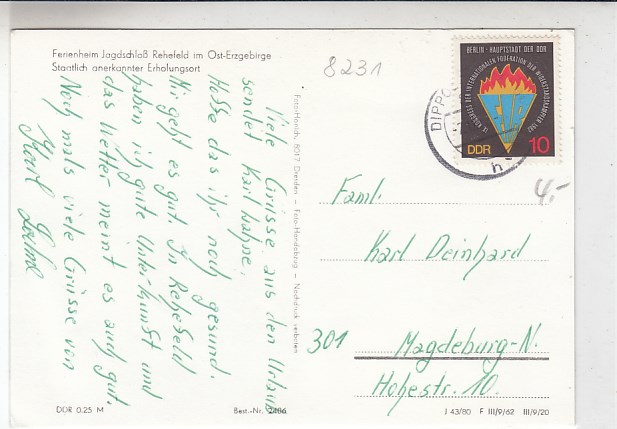 Ferienheim Jagdschloß Rehefeld im Ost-Erzgebirge
Staatlich anerkannter Erholungsort
8231
Viele Grüsse aus den Urlaub
sendet Karl
Hoffe das ihr noch gesund.
Mir geht es gut. In Rehefeld
haben ich gute Unterkunft und
das Wetter meint es auch gut.
Noch mals viele Grüsse von
Karl
8017 Dresden – Foto-Handabzug – Nachdruck verboten
BERLIN · HAUPTSTADT DER DDR
IX. KONGRESS DER INTERNATIONALEN FÖDERATION DER WIDERSTANDSKÄMPFER 1982
DDR 10
DIPPOL
h
4,-
Faml.
Karl Deinhard
301 Magdeburg-N.
Hohestr. 10.
DDR 0.25 M
Best.-Nr. 2486
J 43/80 F III/9/62 III/9/20